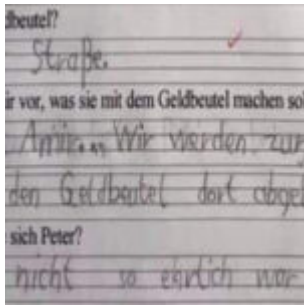 dbeutel?
Straße.
ir vor, was sie mit dem Geldbeutel machen sol
Amir... Wir werden zur
den Geldbeutel dort abgel
sich Peter?
nicht so ehrlich war